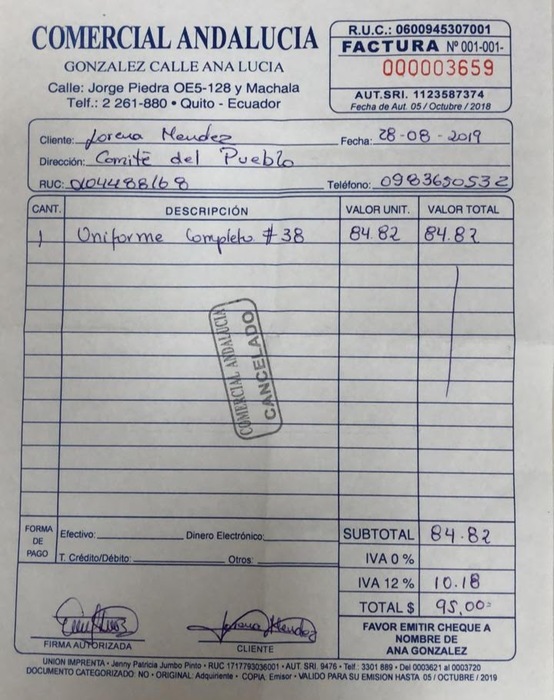 COMERCIAL ANDALUCIA
GONZALEZ CALLE ANA LUCIA
Calle: Jorge Piedra OE5-128 y Machala
Telf.: 2 261-880 • Quito - Ecuador
R.U.C.: 0600945307001
FACTURA Nº 001-001-
000003659
AUT.SRI. 1123587374
Fecha de Aut. 05 / Octubre / 2018
Cliente: Lorena Mendez Fecha: 28-08-2019
Dirección: Comité del Pueblo
RUC: Teléfono: 0983650532
CANT. DESCRIPCIÓN VALOR UNIT. VALOR TOTAL
1 Uniforme Completo #38 84.82 84.82
COMERCIAL ANDALUCIA
CANCELADO
FORMA DE PAGO
Efectivo: Dinero Electrónico:
T. Crédito/Débito: Otros:
SUBTOTAL 84.82
IVA 0 %
IVA 12 % 10.18
TOTAL $ 95,00=
FIRMA AUTORIZADA
Lorena Mendez
CLIENTE
FAVOR EMITIR CHEQUE A
NOMBRE DE
ANA GONZALEZ
UNION IMPRENTA • Jenny Patricia Jumbo Pinto • RUC 1717793036001 • AUT. SRI. 9476 • Telf: 3301 889 • Del 0003621 al 0003720
DOCUMENTO CATEGORIZADO: NO • ORIGINAL: Adquirente • COPIA: Emisor • VALIDO PARA SU EMISION HASTA 05 / OCTUBRE / 2019